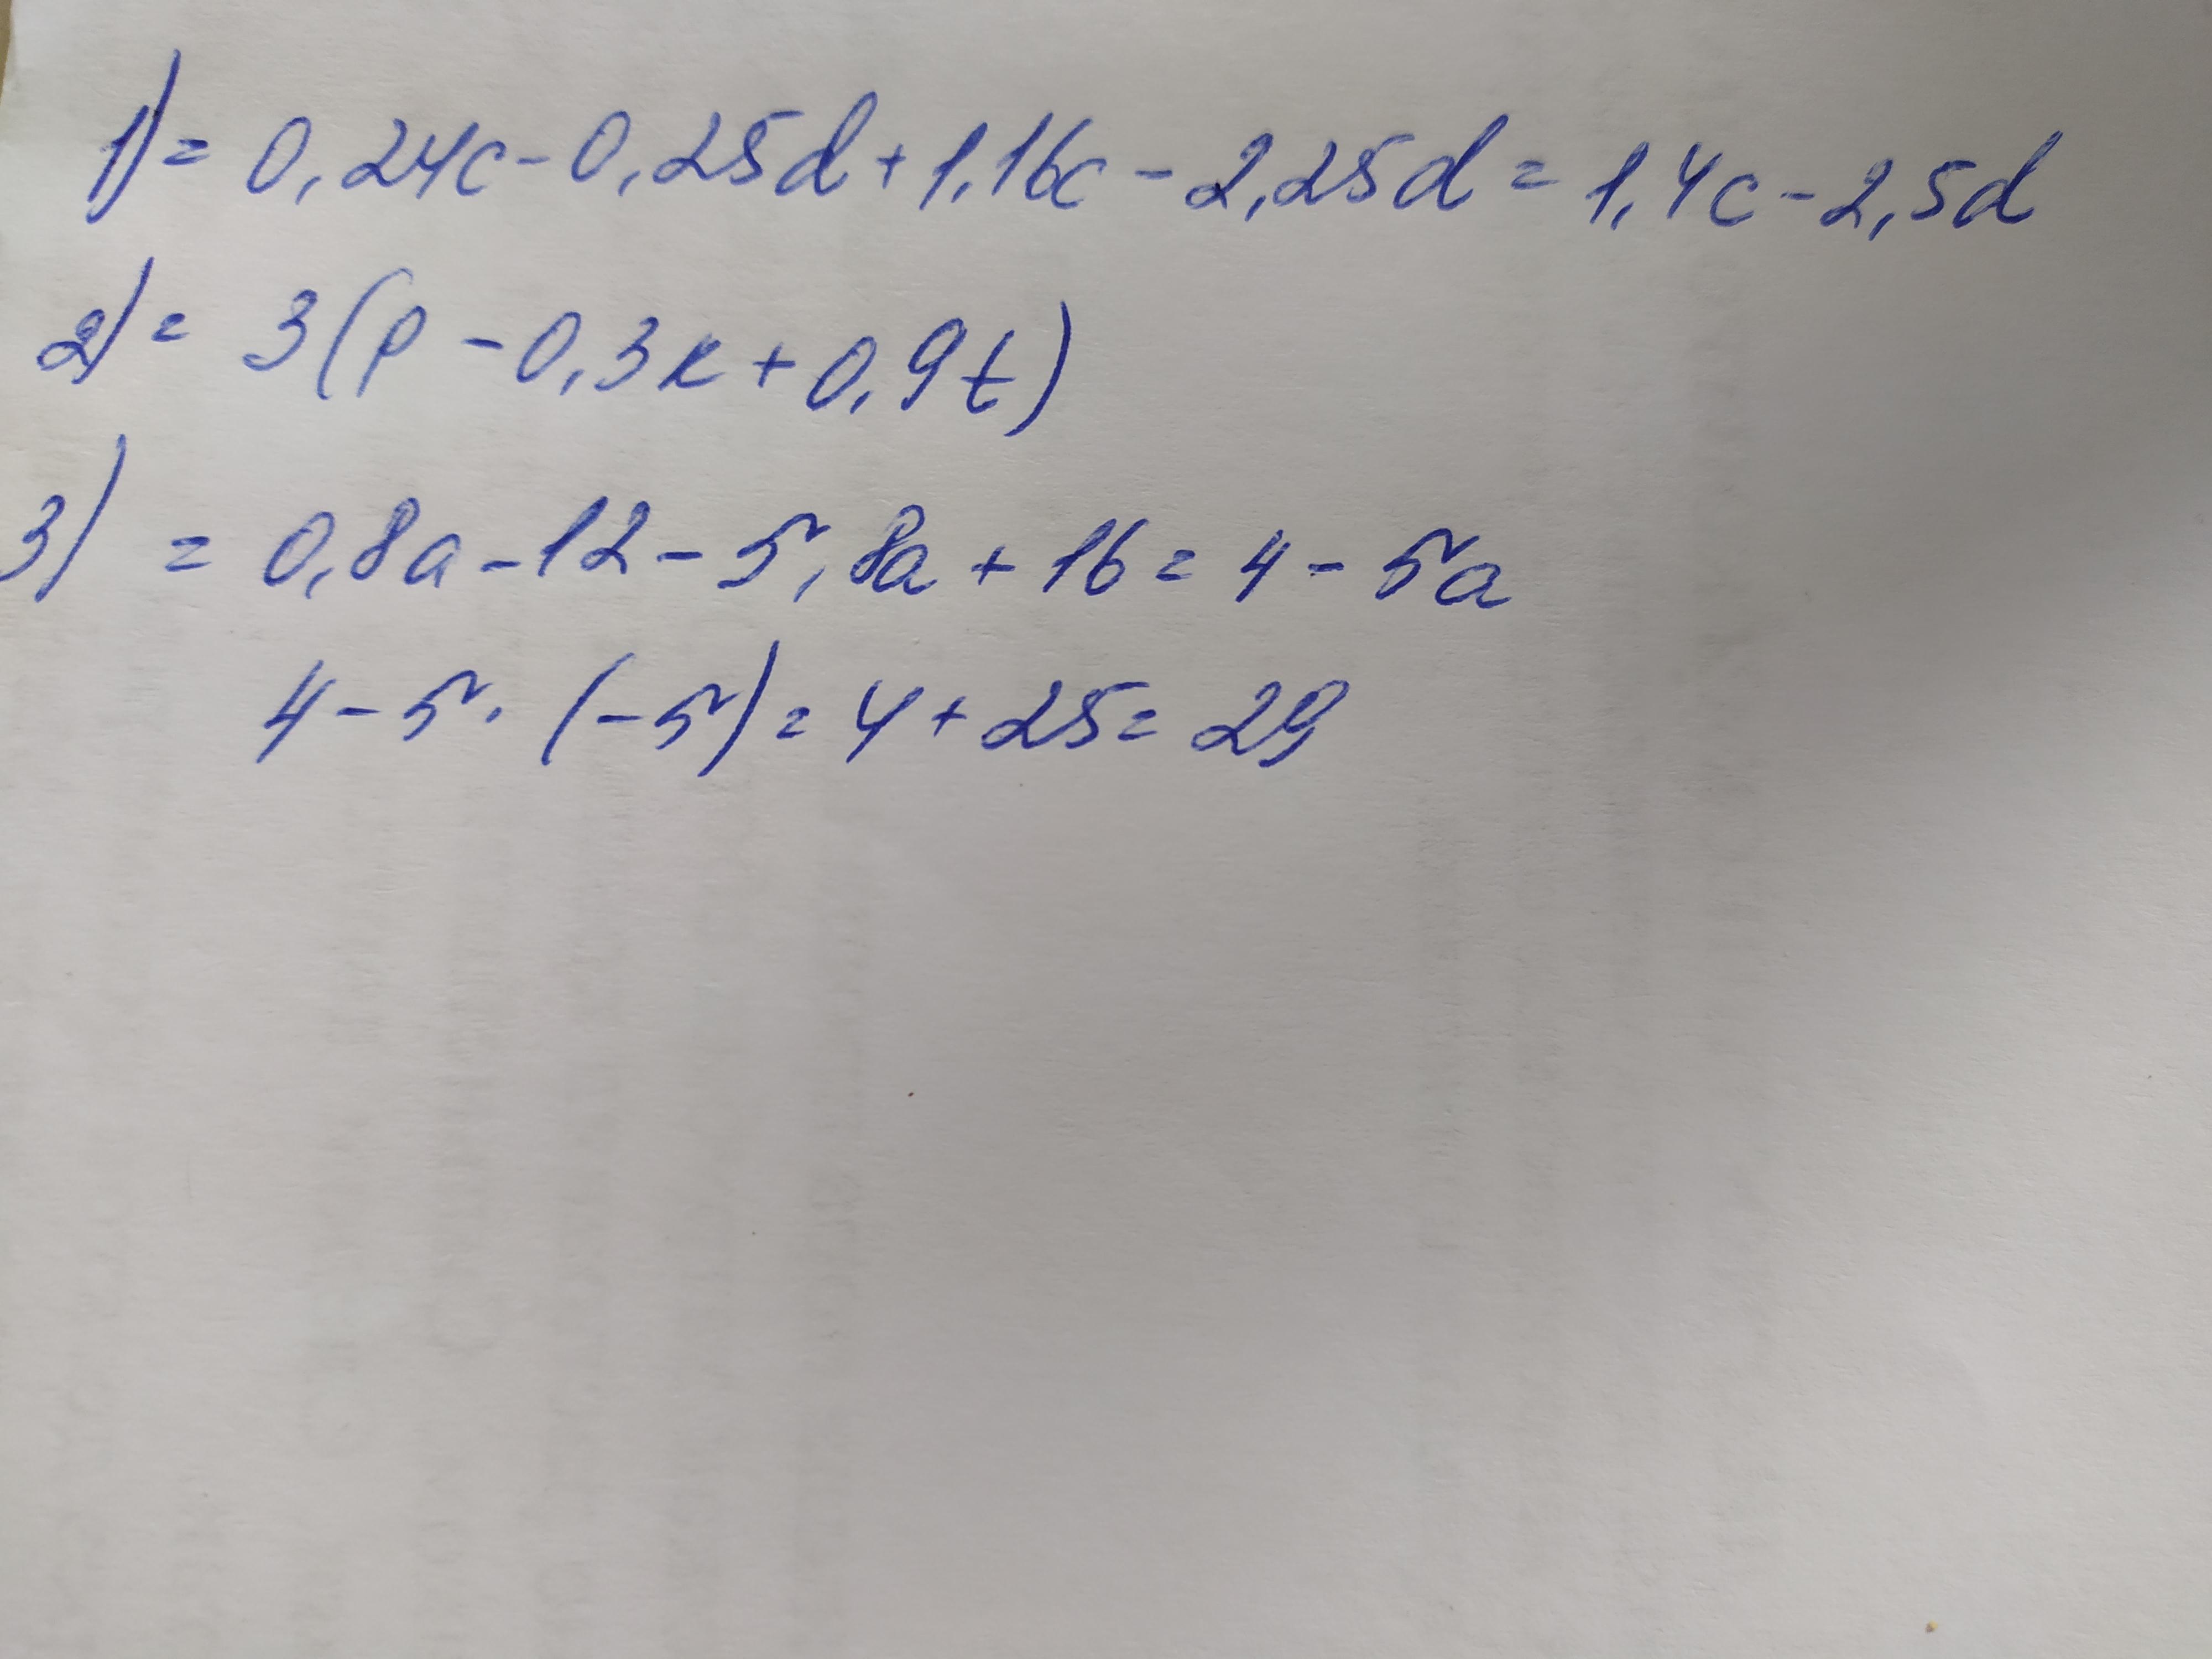 1) = 0,24c - 0,25d + 1,16c - 2,25d = 1,4c - 2,5d
2) = 3(p - 0,3k + 0,9t)
3) = 0,8a - 12 - 5,8a + 16 = 4 - 5a
4 - 5 · (-5) = 4 + 25 = 29